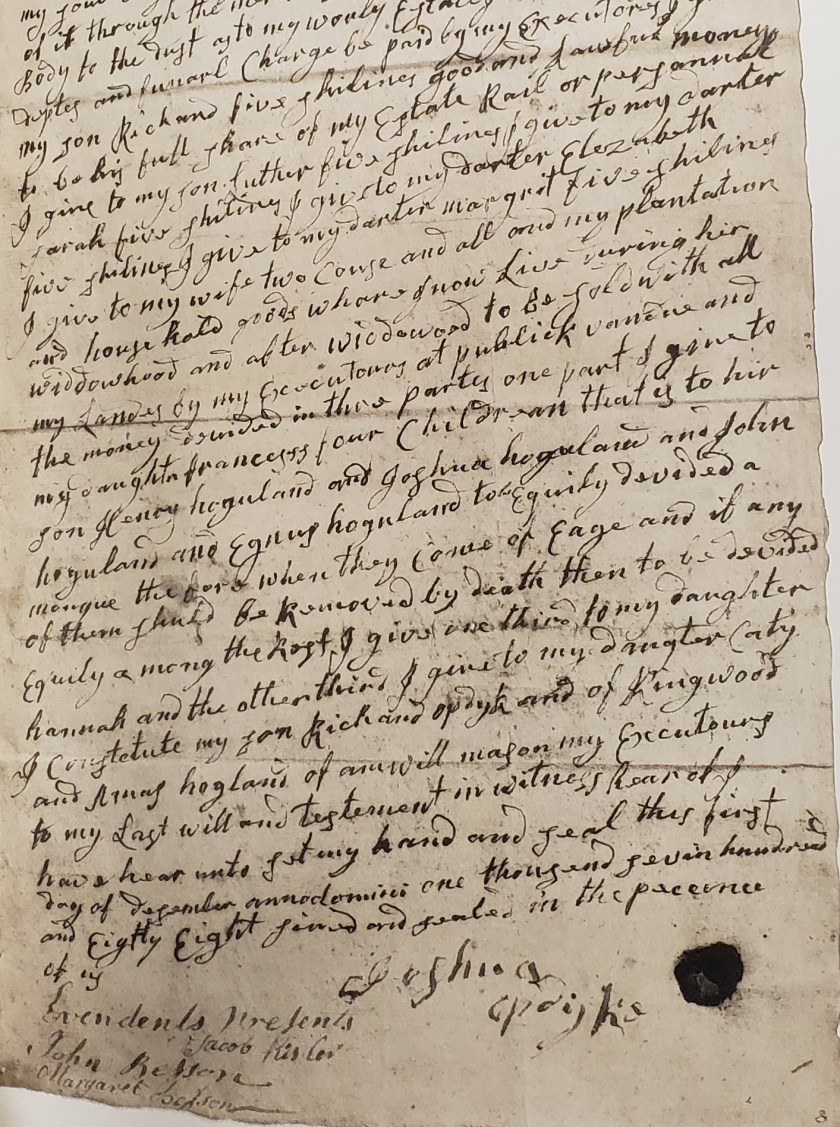 my
of it through the
Body to the dust as to my worly Estate
Deptes and funarl Charge be paid by my Executores I
my son Richard five shilings good and Lawfull money
to be his full share of my Estate Rail or persannal
I give to my son Luther five shilings I give to my darter
sarah five shilings I give to my darter Elezabeth
five shilings I give to my darter margrit five shilings
I give to my wife two Couse and all and my plantation
and houshold goods whare I now Live during her
widdowhood and after widdowood to be sold with all
my Landes by my Executours at publick vandue and
the money devided in three Partes one part I give to
my daughter francess four Childrean that is to hir
son Henry hoguland and Joshua hoguland and John
hoguland and Egnus hoguland to be Equily devided a
mongue the fore when they Come of Eage and if any
of them shuld be Removed by death then to be devided
Equily a mong the Rest I give one third to my daughter
hannah and the other third I give to my daugter Caty
I Constetute my son Richard opdyk and of Kingwood
and Amas hogland of amwill mason my Executours
to my Last will and testement in witness hear of I
have hear unto set my hand and seal this first
day of desember annodomini one thousend sevin hundred
and Eighty Eight sined and sealed in the pecence
of us
Joshua
opdyke
Evendents Presents
Jacob Kisler
John Besson
Margaret Besson
8